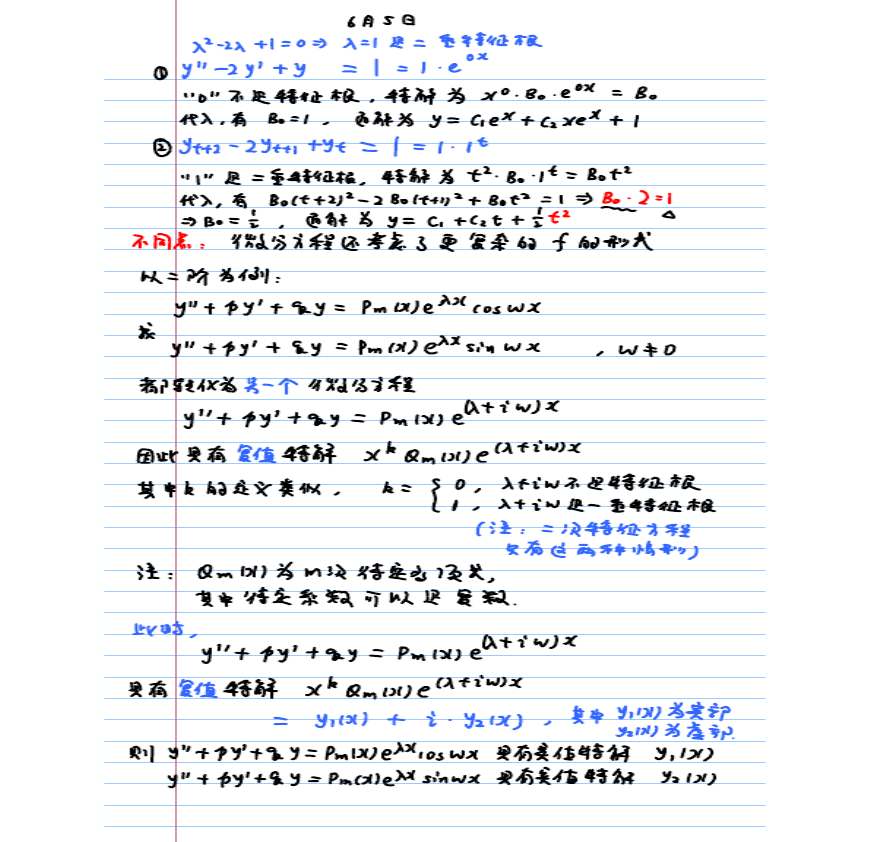 6月5日
λ²-2λ+1=0⇒λ=1是二重特征根
① y''-2y'+y = 1 = 1·e^{0x}
"0"不是特征根,特解为 x⁰·B₀·e^{0x} = B₀
代入,有 B₀=1, 通解为 y = C₁e^x + C₂xe^x + 1
② y_{t+2} - 2y_{t+1} + y_t = 1 = 1·1^t
"1"是二重特征根,特解为 t²·B₀·1^t = B₀t²
代入,有 B₀(t+2)² - 2B₀(t+1)² + B₀t² = 1 ⇒ B₀·2=1
⇒ B₀ = 1/2, 通解为 y = C₁ + C₂t + 1/2 t²
不同点: 微分方程还考虑了更复杂的 f 的形式
以二阶为例:
y'' + py' + qy = Pm(x)e^{λx} cosωx
或
y'' + py' + qy = Pm(x)e^{λx} sinωx , ω≠0
都转化为另一个微分方程
y'' + py' + qy = Pm(x)e^{(λ+iω)x}
因此具有复值特解 x^k Qm(x)e^{(λ+iω)x}
其中k的定义类似, k = { 0, λ+iω不是特征根
1, λ+iω是一重特征根
(注:二次特征方程
只有这两种情形)
注: Qm(x)为m次待定多项式,
其中待定系数可以是复数.
此时,
y'' + py' + qy = Pm(x)e^{(λ+iω)x}
具有复值特解 x^k Qm(x)e^{(λ+iω)x}
= y₁(x) + i·y₂(x), 其中 y₁(x)为实部
y₂(x)为虚部.
则 y'' + py' + qy = Pm(x)e^{λx}cosωx 具有实值特解 y₁(x)
y'' + py' + qy = Pm(x)e^{λx}sinωx 具有实值特解 y₂(x)